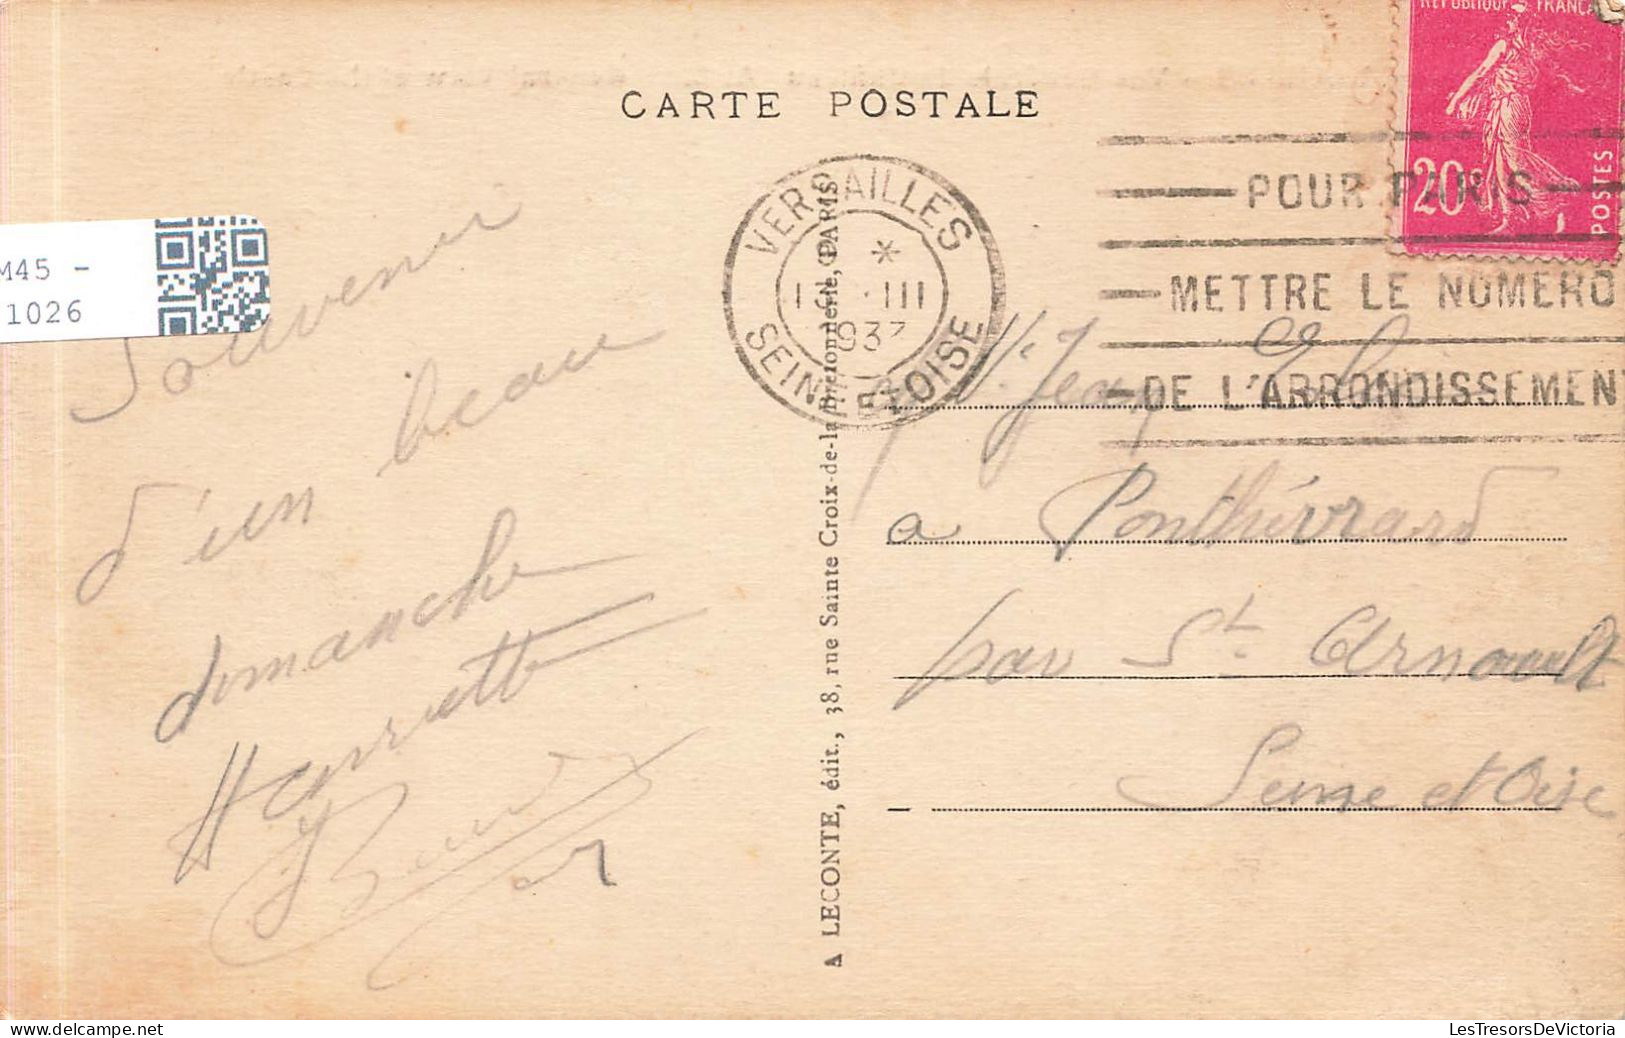 RÉPUBLIQUE FRANÇA
CARTE POSTALE
20
POSTES
VERSAILLES
* III
193
SEINE ET OISE
POUR PARIS
METTRE LE NUMERO
DE L'ARRONDISSEMENT
M45 -
1026
Souvenir
d'un beau
dimanche
Henriette
A LECONTE, édit., 38, rue Sainte Croix-de-la Bretonnerie, PARIS
Jean
a Ponthévrard
par St Arnoult
Seine et Oise
LesTresorsDeVictoria
www.delcampe.net